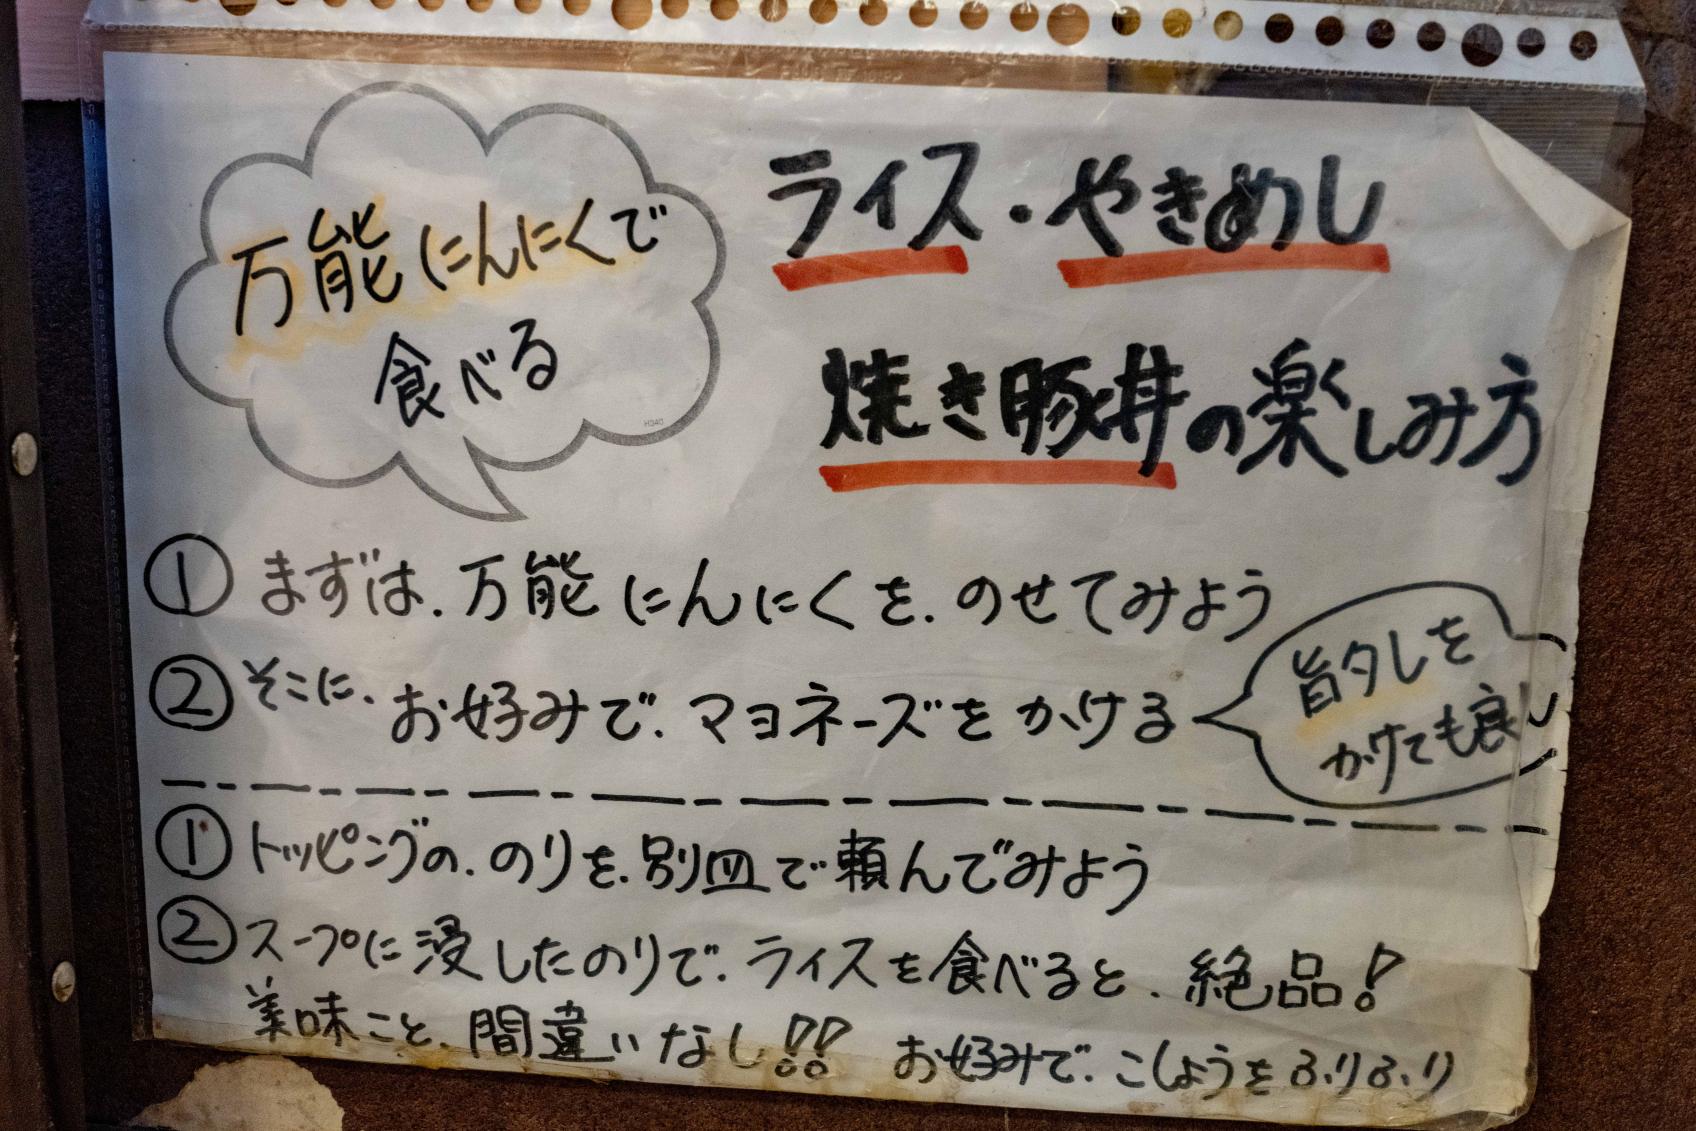 万能にんにくで
食べる
ライス・やきめし
焼き豚丼の楽しみ方
H340
① まずは、万能にんにくを、のせてみよう
② そこに、お好みで、マヨネーズをかける
旨タレを
かけても良い
① トッピングの、のりを、別皿で頼んでみよう
② スープに浸したのりで、ライスを食べると、絶品!
美味こと、間違いなし!! お好みで、こしょうをふりふり